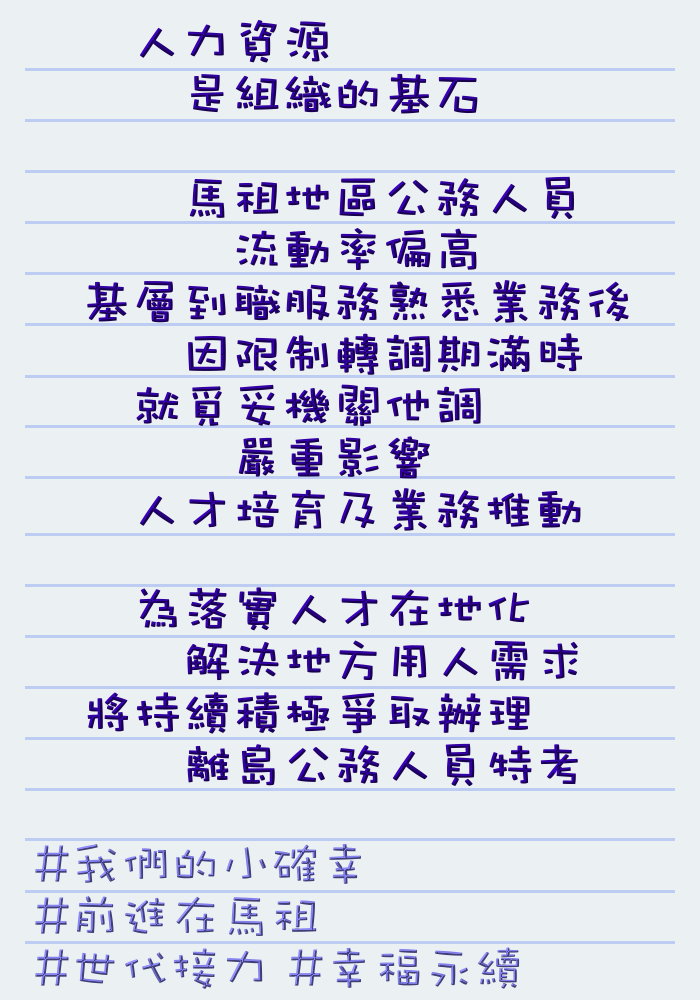 人力資源
是組織的基石
馬祖地區公務人員
流動率偏高
基層到職服務熟悉業務後
因限制轉調期滿時
就覓妥機關他調
嚴重影響
人才培育及業務推動
為落實人才在地化
解決地方用人需求
將持續積極爭取辦理
離島公務人員特考
#我們的小確幸
#前進在馬祖
#世代接力 #幸福永續